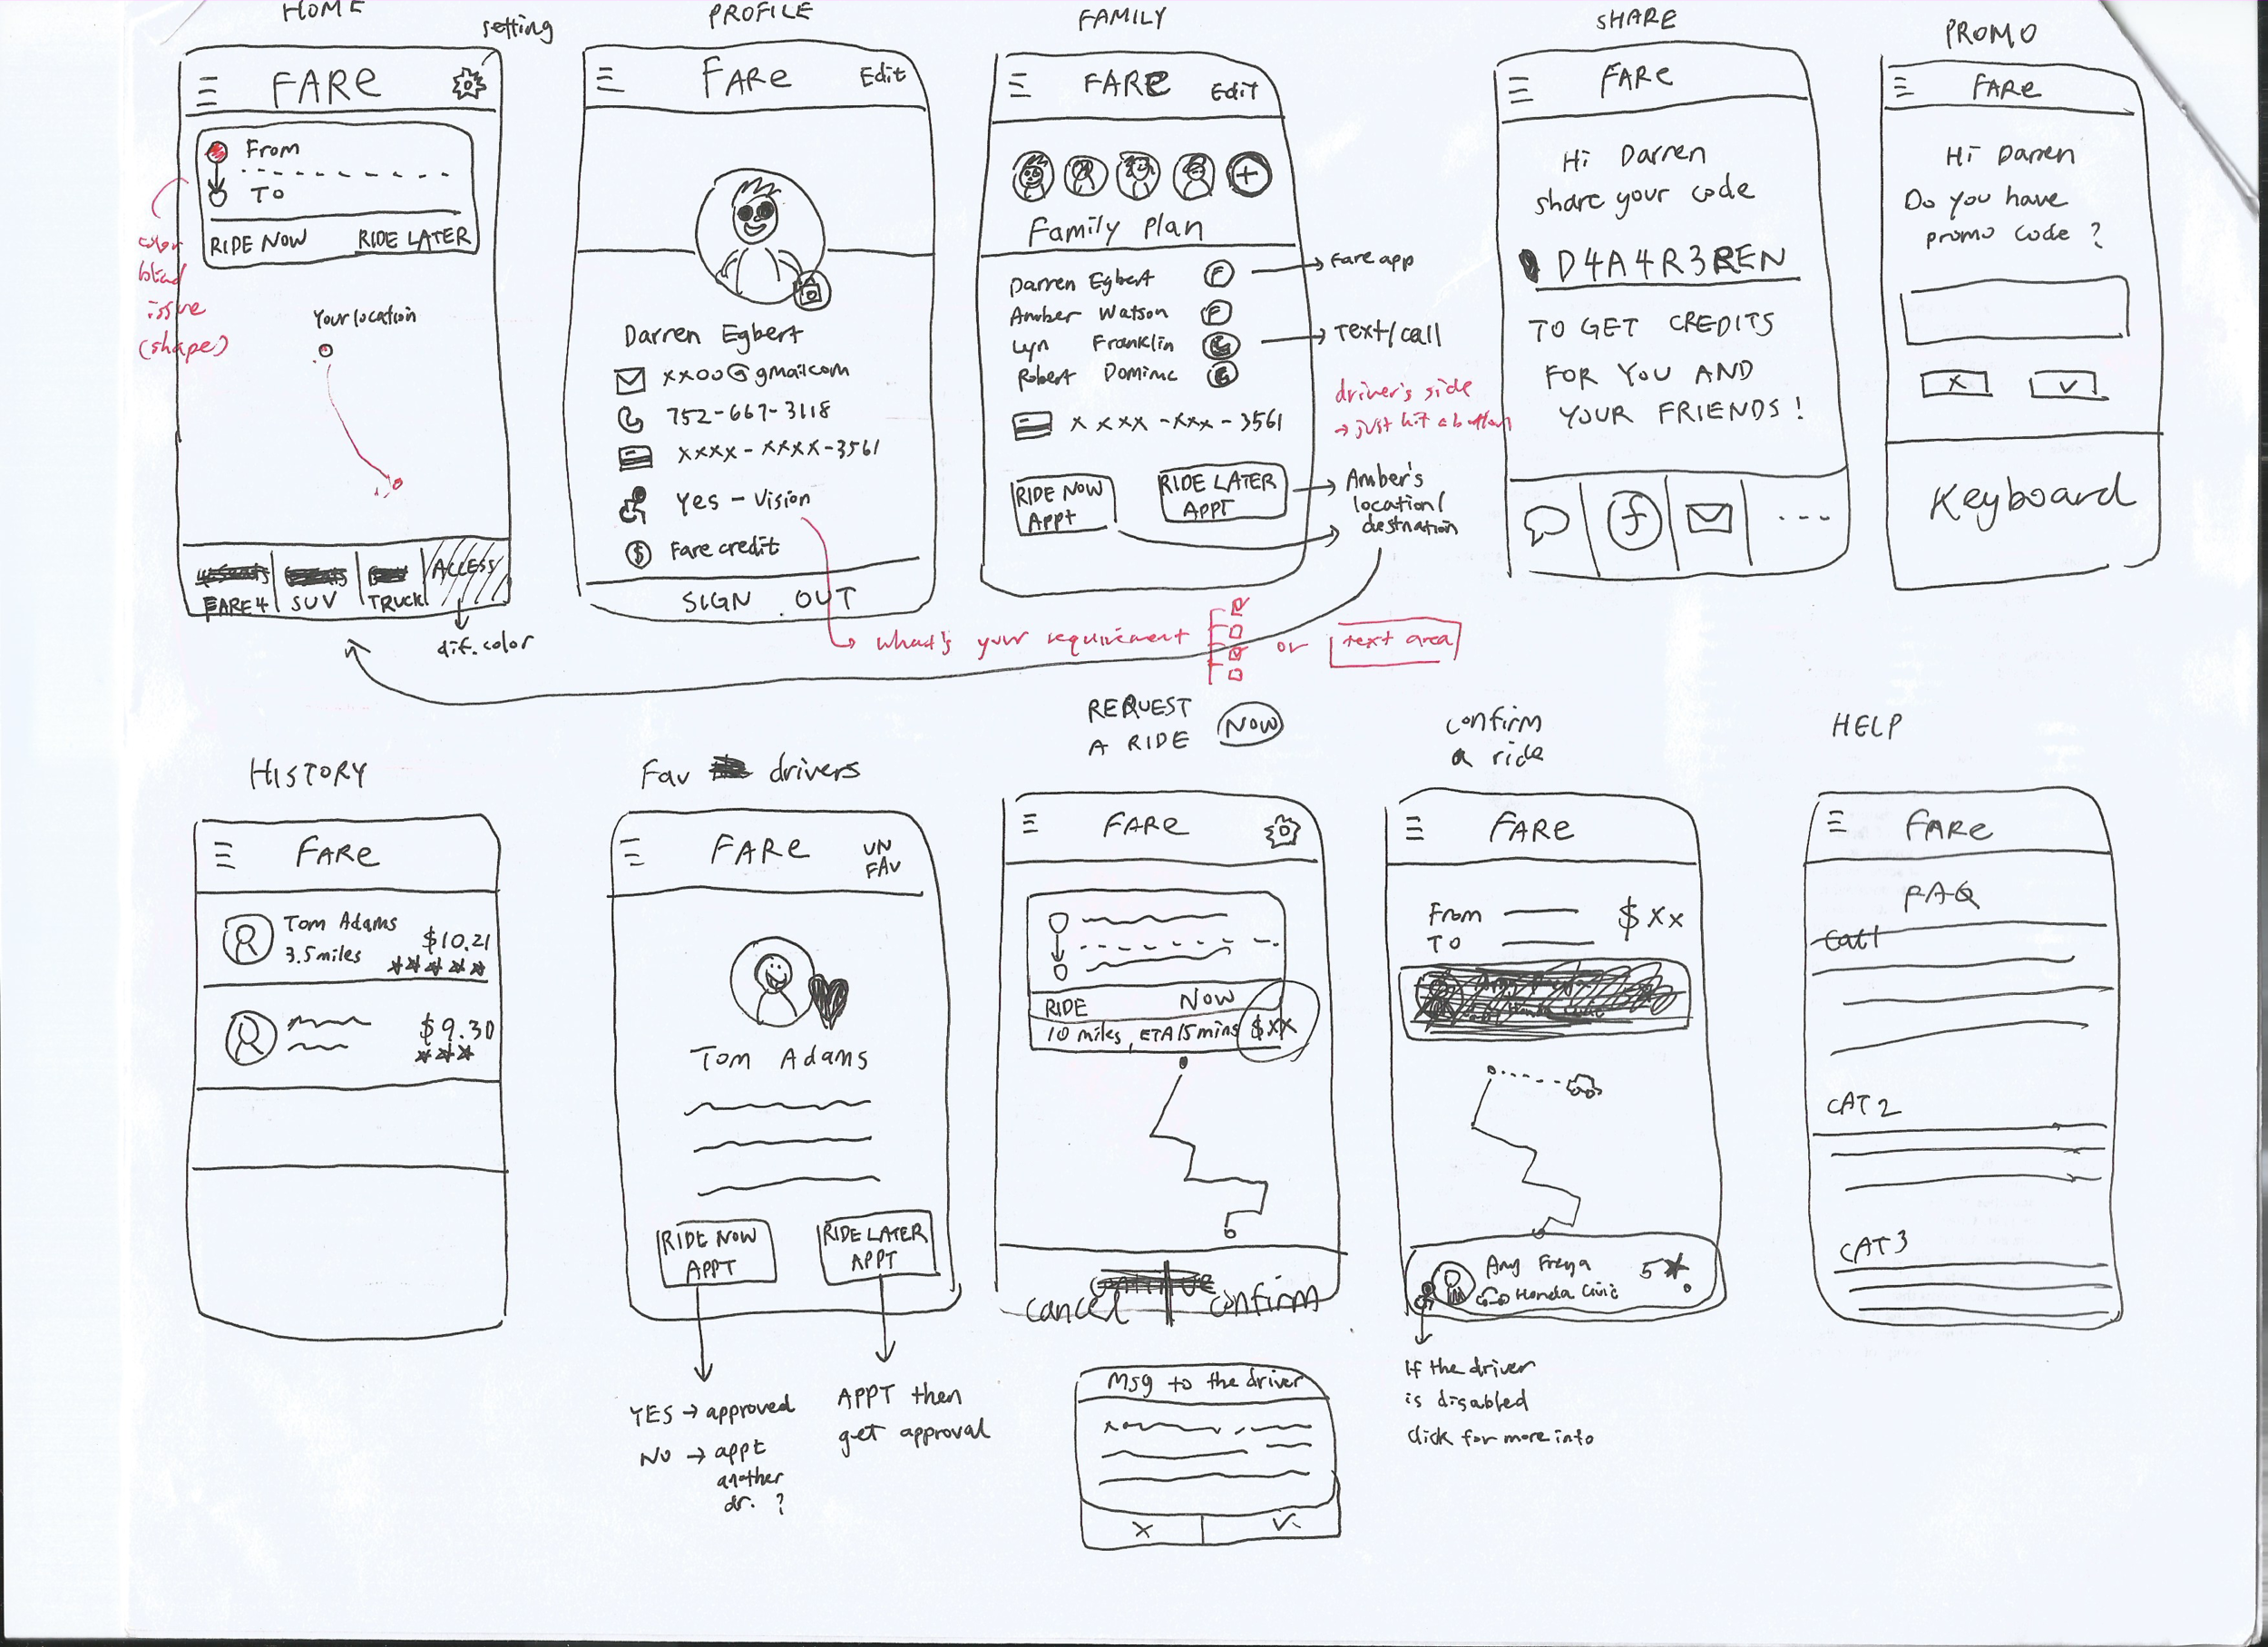 HOME
setting
FARE
From
TO
RIDE NOW
RIDE LATER
color
blind
issue
(shape)
Your location
FARE4
SUV
TRUCK
ACCESS
dif. color
PROFILE
FARE
Edit
Darren Egbert
xxoo@gmail.com
752-667-3118
xxxx - xxxx-3561
Yes - Vision
$ Fare credit
SIGN OUT
what's your requirement
or
text area
FAMILY
FARE
Edit
Family Plan
Darren Egbert F
Amber Watson F
Lyn Franklin
Robert Dominic
x xxx -xxx - 3561
RIDE NOW
APPt
RIDE LATER
APPT
Fare app
Text/call
driver's side
→ just hit a button
Amber's
location/
destnation
SHARE
FARE
Hi Darren
share your code
D4A4R3REN
TO GET CREDITS
FOR YOU AND
YOUR FRIENDS!
f
...
PROMO
FARE
Hi Darren
Do you have
promo code ?
X
V
Keyboard
HISTORY
FARE
Tom Adams
3.5 miles
$10.21
$9.30
Fav drivers
FARE
UN
FAV
Tom Adams
RIDE NOW
APPT
RIDE LATER
APPT
YES → approved
NO → appt
another
dr. ?
APPT then
get approval
REQUEST
A RIDE
NOW
FARE
RIDE NOW
10 miles, ETA 15 mins $XX
cancel
confirm
Msg to the driver
X
confirm
a ride
FARE
From
TO
$ XX
Amy Freya
Honda Civic
5
If the driver
is disabled
click for more info
HELP
FARE
FAQ
Cat1
CAT 2
CAT3